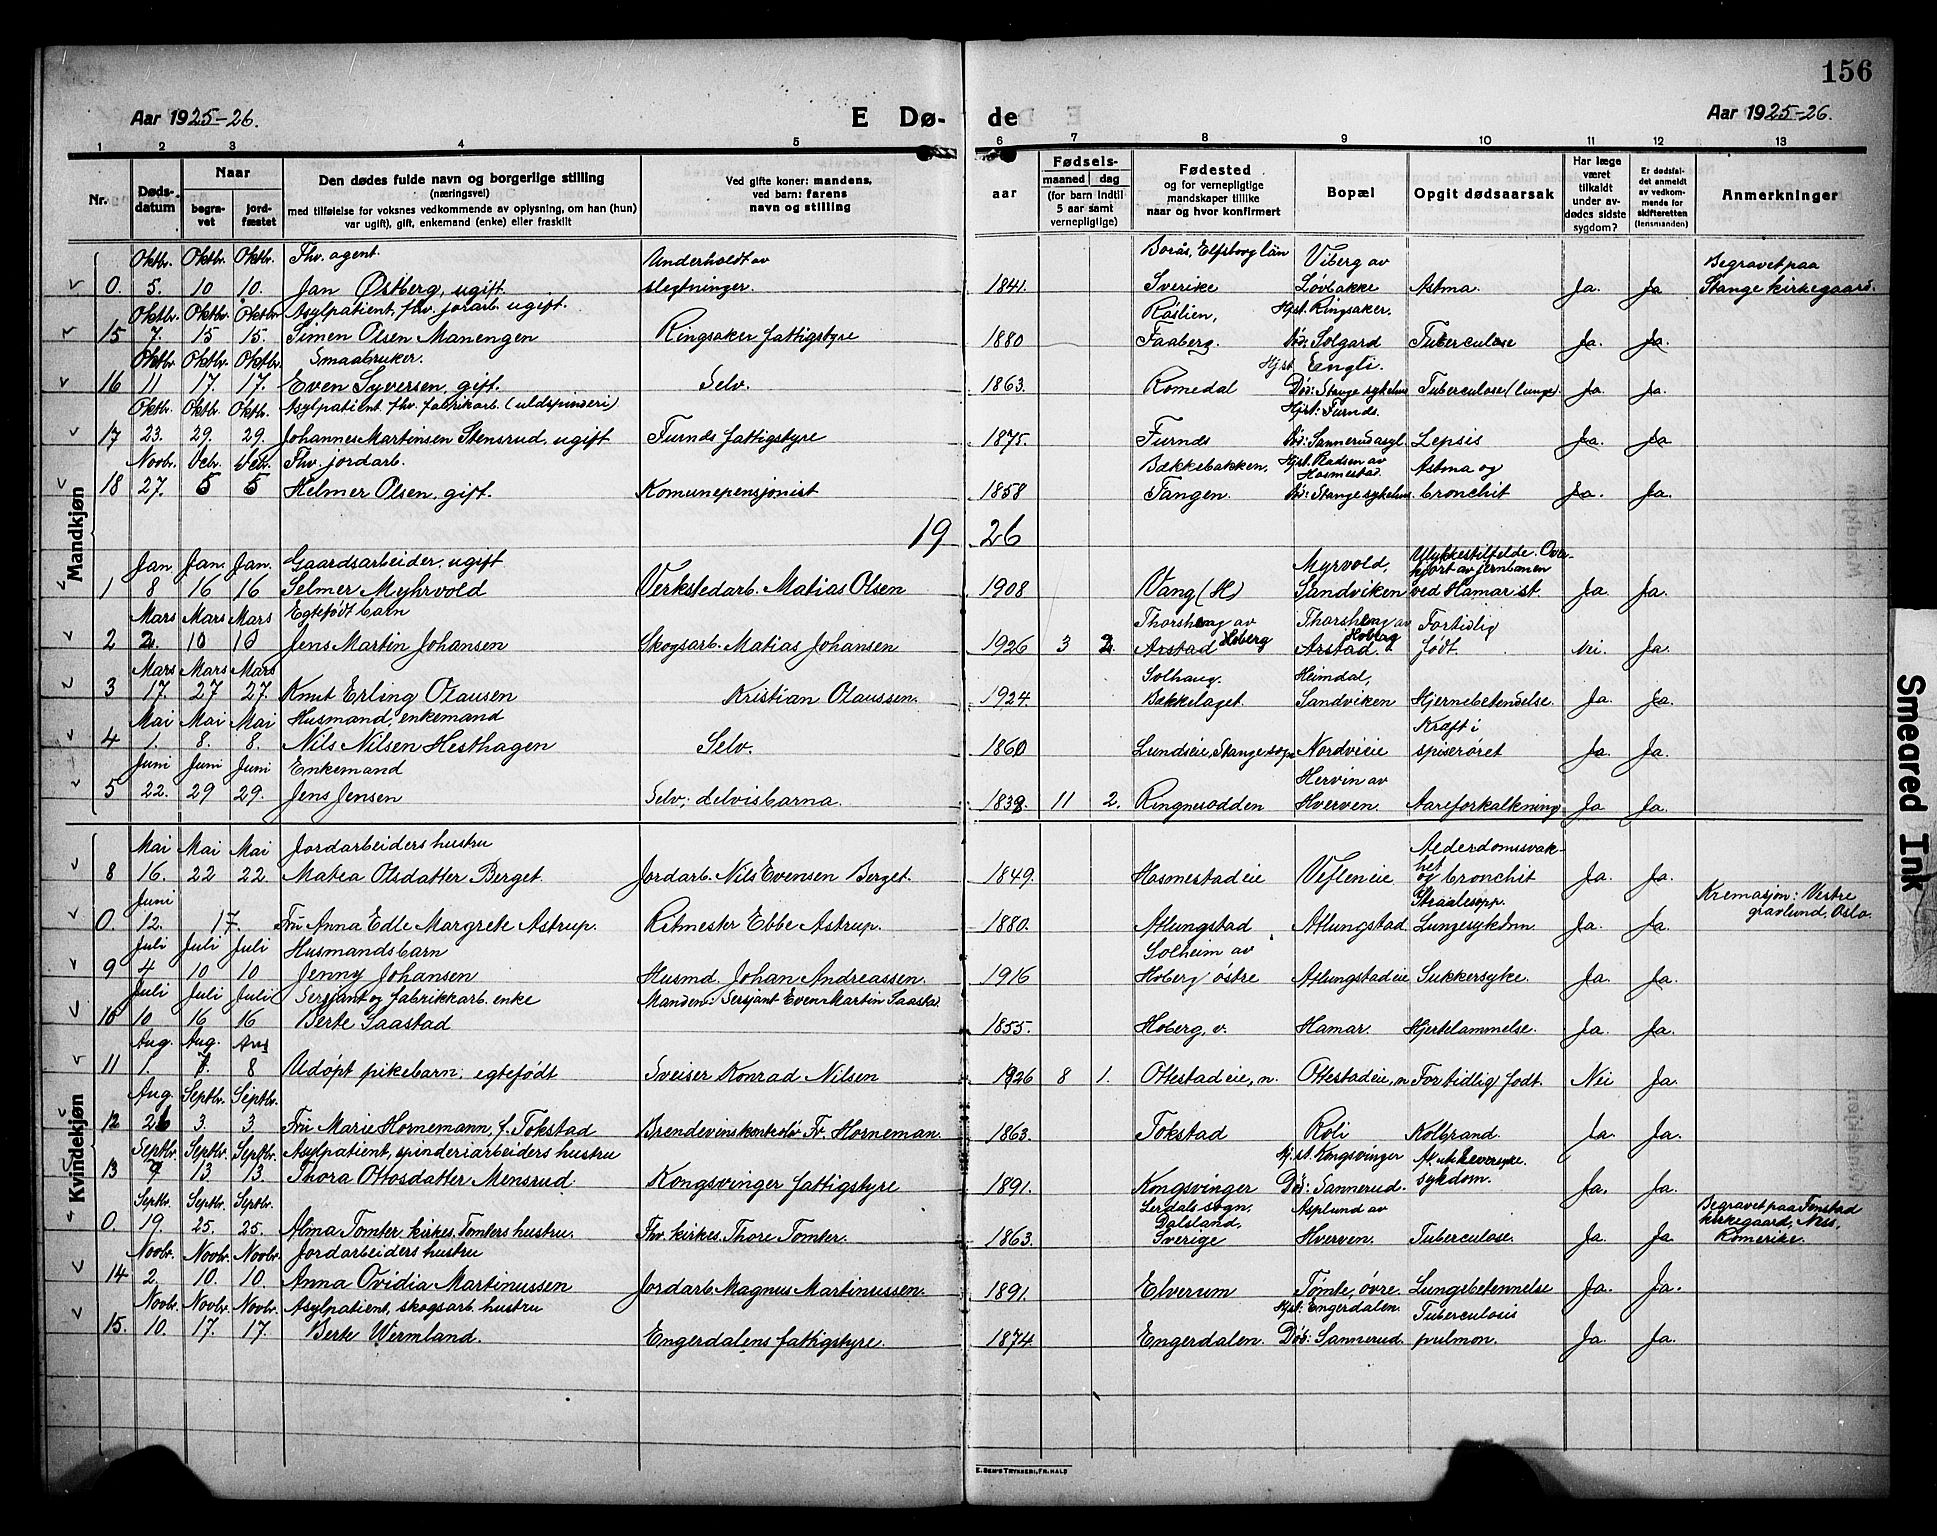 156
Aar 1925-26. E Dø- de Aar 1925-26.
1 2 3 4 5 6 7 8 9 10 11 12 13
Nr. Døds-datum Naar begra-vet jord-fæstet
Den dødes fulde navn og borgerlige stilling
(næringsvei)
med tilføielse for voksnes vedkommende av oplysning, om han (hun)
var ugift), gift, enkemand (enke) eller fraskilt
Ved gifte koner: mandens,
ved barn: farens
navn og stilling
Fødsels-
aar maaned dag
(for barn indtil
5 aar samt
vernepligtige)
Fødested
og for vernepligtige
mandskaper tillike
naar og hvor konfirmert
Bopæl
Opgit dødsaarsak
Har læge
været
tilkaldt
under av-
dødes sidste
sygdom?
Er dødsfal-
det anmeldt
av vedkom-
mende for
skifteretten
(lensmanden)
Anmerkninger
Mandkjøn
Oktbr. Oktbr. Oktbr. Fhv. agent. Underholdt av Borås, Elfsborg län Viberg av Begravet paa
0. 5. 10 10. Jan Østberg, ugift. slegtninger. 1841. Sverike Løvbakke Astma. Ja. Ja Stange kirkegaard.
Oktbr. Oktbr. Oktbr. Asylpatient, fhv. jordarb. ugift. Røslien, Hjst. Ringsaker.
15 7. 15 15. Simen Olsen Manengen Ringsaker fattigstyre 1880 Faaberg. Død: Solgard Tuberculose Ja. Ja.
Oktbr. Oktbr. Oktbr. Smaabruker. Hjst Engli.
16 11 17. 17. Even Syversen, gift. Selv. 1863. Romedal Død: Stange sykehus Tuberculose (Lunge). Ja. Ja.
Oktbr. Oktbr. Oktbr. Asylpatient fhv. fabrikarb. (uldspinderi) Hjst: Furnes.
17 23. 29. 29. Johannes Martinsen Stensrud, ugift Furnes fattigstyre 1875. Furnes Død: Sannerud asyl. Sepsis Ja. Ja
Novbr. Debr. Debr. Fhv. jordarb. Bækkebakken, Hjst. Rødsen av Hosmestad. Astma og
18 27. 5 5 Helmer Olsen, gift. Komunepensjonist 1858 Tangen. Død: Stange sykehus. bronchit Ja. Ja.
19 26
Jan Jan. Jan. Gaardsarbeider, ugift Myrvold, Ulykkestilfelde. Over-kjørt av jernbanen
1 8 16 16 Selmer Myhrvold Verkstedarb. Matias Olsen 1908 Vang (H) Sandviken ved Hamar st. Ja. Ja.
Mars Mars Mars Egtefødt barn Thorshaug av Thorshaug av Fortidlig
2 2. 10 10 Jens Martin Johansen Skogsarb. Matias Johansen 1926 3 2. Arstad Hoberg Arstad Hoberg født. Nei. Ja.
Mars Mars Mars Solhaug. Heimdal,
3 17. 27 27. Knut Erling Olausen Kristian Olaussen. 1924. Bækkelaget. Sandviken Hjernebetendelse. Ja. Ja.
Mai Mai Mai Husmand, enkemand Kræft i
4 1. 8. 8. Nils Nilsen Hesthagen Selv. 1860 Lundseie, Stange sogn Nordvieie spiserøret Ja. Ja.
Juni Juni Juni Enkemand Hervin av
5 22. 29 29. Jens Jensen Selv, delvis barna. 1838 11 2. Ringnesodden Hverven. Aareforkalkning Ja Ja.
Kvindekjøn
Mai Mai Mai Jordarbeiders hustru Alderdomssvak-het
8 16. 22 22. Matea Olsdatter Berget. Jordarb. Nils Evensen Berget. 1849. Hosmestadeie Vefleneie og bronchit Ja. Ja.
Juni Straalesopp. Kremasjon: Vestre
0. 12. 17. Fru Anna Edle Margrete Astrup. Ritmester Ebbe Astrup. 1880. Atlungstad Atlungstad Lungesykdom. Ja. Ja. gravlund, Oslo.
Juli Juli Juli Husmandsbarn Solheim av
9 4 10 10 Jenny Johansen Husmd. Johan Andreassen. 1916 Hoberg østre Atlungstadeie Sukkersyke. Ja. Ja.
Juli Juli Juli Sersjant og fabrikkarb. enke Manden: Sersjant Even Martin Saastad
10 10 16 16 Berte Saastad 1855. Hoberg, v. Hamar. Hjertelammelse. Ja. Ja.
Aug. Aug. Aug
11 1. 7. 8 Udøpt pikebarn, egtefødt Sveiser Konrad Nilsen 1926 8 1. Ottestadeie, n. Ottestadeie, n Fortidlig født. Nei Ja.
Aug. Septbr. Septbr.
12 26 3. 3 Fru Marie Hornemann, f. Tokstad Brendevinskontrolør Fr. Horneman. 1863. Tokstad Roli Kolbrand. Ja. Ja.
Septbr. Septbr. Septbr. Asylpatient, spinderiarbeiders hustru Hj. st. Kongsvinger Akut Leversyke.
13 7 13. 13. Thora Ottosdatter Mensrud. Kongsvinger fattigstyre 1891. Kongsvinger Død: Sannerud. sykdom. Ja. Ja.
Septbr. Septbr. Septbr. Lerdals sogn, Dalsland, Asplund av Begravet paa Fenstad kirkegaard, Nes,
0. 19. 25. 25. Alma Tomter, kirkes. Tomters hustru. Fhv. kirkes. Thore Tomter. 1863. Sverige Hverven. Tuberculose. Ja. Ja Romerike.
Novbr. Novbr. Novbr. Jordarbeiders hustru
14 2. 10. 10. Anna Ovidia Martinussen Jordarb. Magnus Martinussen. 1891. Elverum Tømte, øvre Lungebetennelse Ja. Ja.
Novbr. Novbr. Novbr. Asylpatient, skogsarb. hustru Hjst: Engerdalen. Tuberculosis
15. 10. 17. 17. Berte Wermland. Engerdalens fattigstyre. 1874. Engerdalen. Død: Sannerud. pulmon. Ja. Ja.
E. SEM'S TRYKKERI, FR.HALD
Smeared Ink